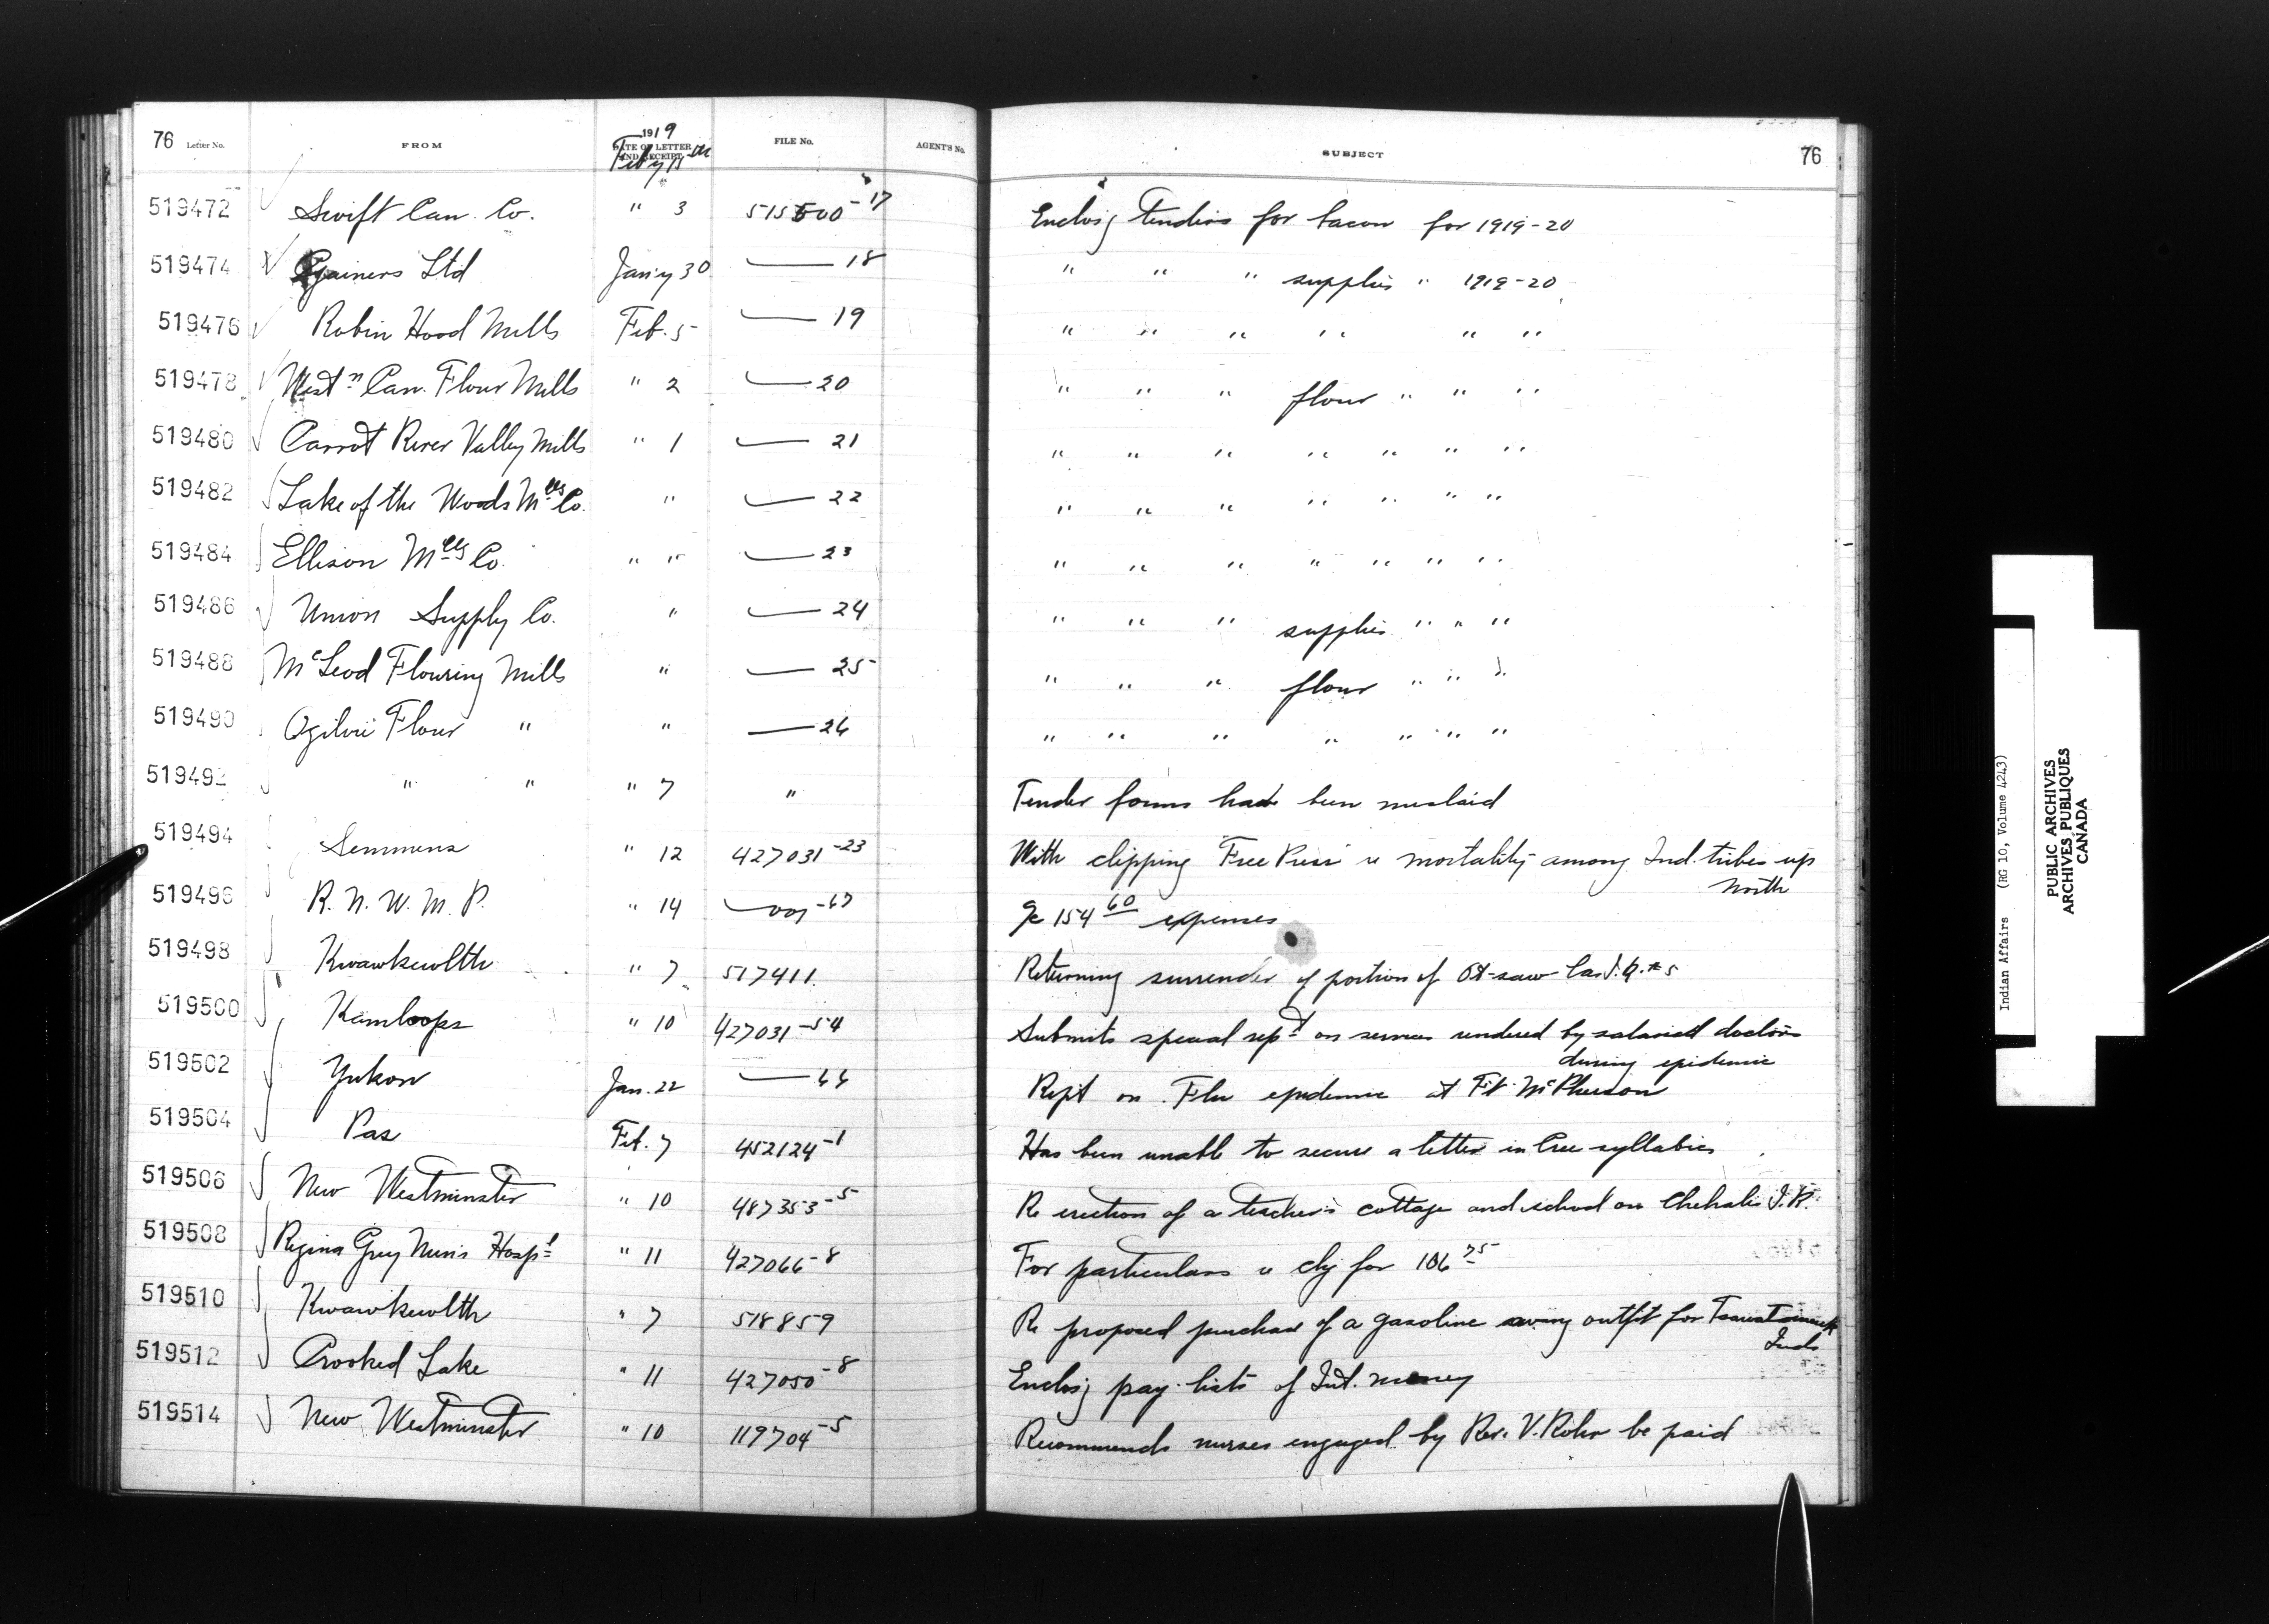 76 Letter No. FROM 1919 DATE OF LETTER AND RECEIPT FILE No. AGENT'S No. SUBJECT 76
Feby
519472 Swift Can. Co. " 3 515500-17 Enclosg tenders for bacon for 1919-20
519474 Gainers Ltd Jany 30 — 18 " " " supplies " 1919-20
519476 Robin Hood Mills Feb. 5 — 19 " " " " " "
519478 Westn Can. Flour Mills " 2 — 20 " " " flour " " "
519480 Carrot River Valley Mills " 1 — 21 " " " " " " "
519482 Lake of the Woods Mllg Co. " — 22 " " " " " " "
519484 Ellison Mllg Co. " " — 23 " " " " " " "
519486 Union Supply Co. " — 24 " " " supplies " " "
519488 McLeod Flouring Mills " — 25 " " " flour " " "
519490 Ogilvie Flour " " — 26 " " " " " " "
519492 " " " 7 " Tender forms have been mislaid
519494 Semmens " 12 427031-23 With clipping Free Press re mortality among Ind. tribes up
North
519496 R. N. W. M. P. " 14 — -67 a/c 154 60 expenses
519498 Kwawkewlth " 7 517411 Returning surrender of portion of Ot-saw-las I.R. #5
519500 Kamloops " 10 427031-54 Submits special rept on services rendered by salaried doctors
during epidemic
519502 Yukon Jan. 22 — 66 Rept on Flu epidemic at Ft. McPherson
519504 Pas Feb. 7 452124-1 Has been unable to secure a letter in Cree syllabics
519506 New Westminster " 10 487353-5 Re erection of a teacher's cottage and school on Chehalis I.R.
519508 Regina Grey Nun's Hospl " 11 427066-8 For particulars re chg for 106 75
519510 Kwawkewlth " 7 518859 Re proposed purchase of a gasoline outfit for Tsawatainuk
Inds
519512 Crooked Lake " 11 427050-8 Enclosg pay-lists of Int. money
519514 New Westminster " 10 119704-5 Recommends nurses engaged by Rev. V. Rohr be paid
Indian Affairs (RG 10, Volume 4243)
PUBLIC ARCHIVES
ARCHIVES PUBLIQUES
CANADA